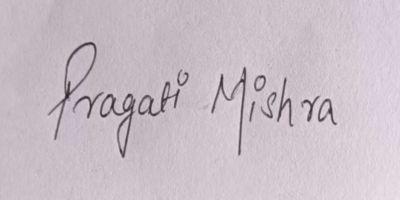 Pragati Mishra